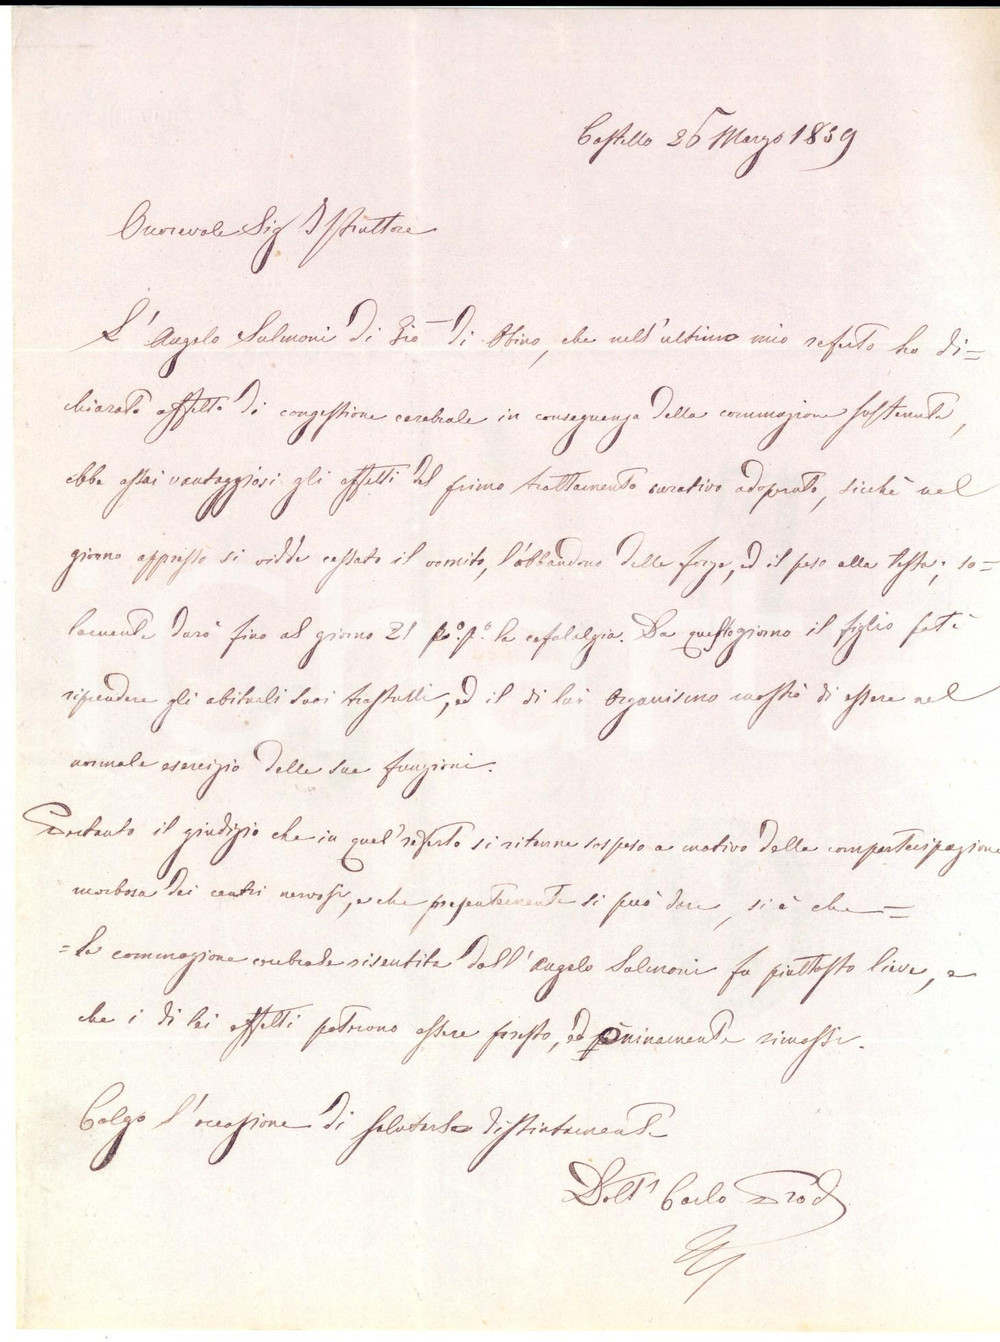 Castello 26 Marzo 1859
Onorevole Sig Istruttore
L'Angelo Salmoni di Gio di Obino, che nell'ultimo mio referto ho di=
chiarato affetto di congestione cerebrale in conseguenza della commozione sostenuta,
ebbe assai vantaggiosi gli effetti del primo trattamento curativo adoperato, sicchè nel
giorno appresso si vidde cessato il vomito, l'abbandono delle forze, ed il peso alla testa; so=
lamente durò fino al giorno 21 p.º p.º la cefalalgia. Da questo giorno il figlio potè
riprendere gli abituali suoi trastulli, ed il di lui organismo mostrò di essere nel
normale esercizio delle sue funzioni.
Pertanto il giudizio che in quel referto si ritenne sospeso a motivo della compartecipazione
morbosa dei centri nervosi, e che presentemente si può dare, si è che =
= la commozione cerebrale risentita dall'Angelo Salmoni fu piuttosto lieve, e
che i di lei effetti poterono essere presto, ed pienamente rimossi.
Colgo l'occasione di salutarla distintamente
Dott.r Carlo